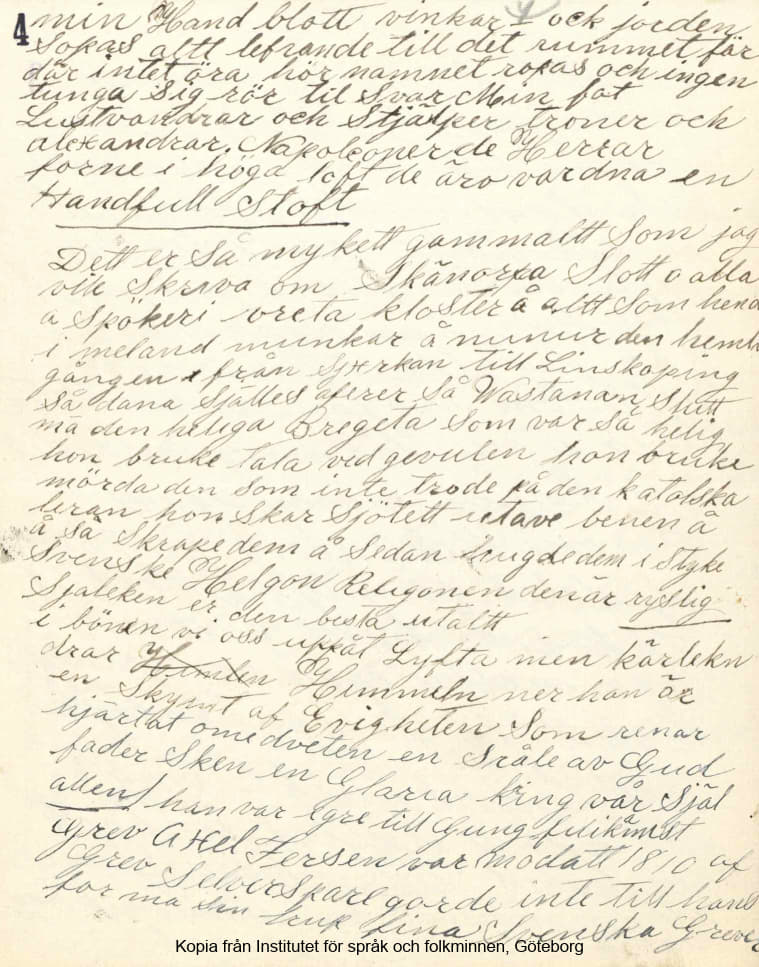 4
min Hand blott vinkar – ock jorden
Sopas altt lefvande till det rummet får
där intet öra hör namnet ropas och ingen
tunga sig rör til Svar Min fot
Lustvandrar och Stjälper troner och
alexandrar. Napoleoner de Herrar
forne i höga loft de äro vordna en
Handfull Stoft
Dett er Så mykett gammaltt Som jag
vile Skriva om Skänorna Slott o alla
a Spökeri vreta kloster å altt Som hend
i meland munkar å nunur den heml
gången från kyrkan till Linskoping
Så dana Själles aferer Så Wastanan Slott
må den heliga Bregeta Som var Så helig
hon bruke tala ved gevulen hon bruke
mörda den Som inte trode på den katolska
leran hon Skar Sjötett utave benen å
å Så Skrape dem å Sedan hugde dem i Styke
Svenske Helgon Religonen den är ryslig
Sjaleken er den besta utaltt
i bönen vi oss uppåt Lyfta men kärlekn
drar Himlen Himmeln ner han är
en Skymt af Evigheten Som renar
hjärtat omedveten en Sråle av Gud
fader Sken en Glaria kring vår Själ
allen! han var egre till Gung
Grev Axel Fersen var modatt 1810 af
Grev Selverspare gorde inte till hans
for ma Sin fina Svenska Grever
Kopia från Institutet för språk och folkminnen, Göteborg